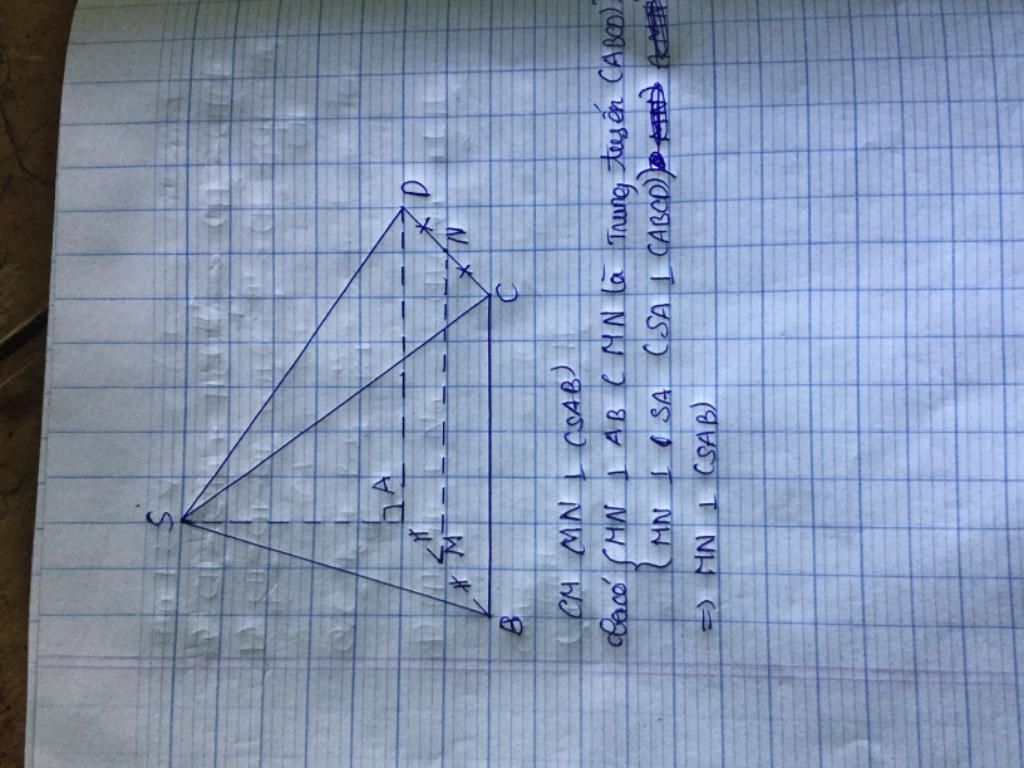 S
A
D
M
N
B
C
CM MN ⊥ (SAB)
có { MN ⊥ AB ( MN là trung tuyến (ABCD)
{ MN ⊥ SA (SA ⊥ (ABCD))
=> MN ⊥ (SAB)